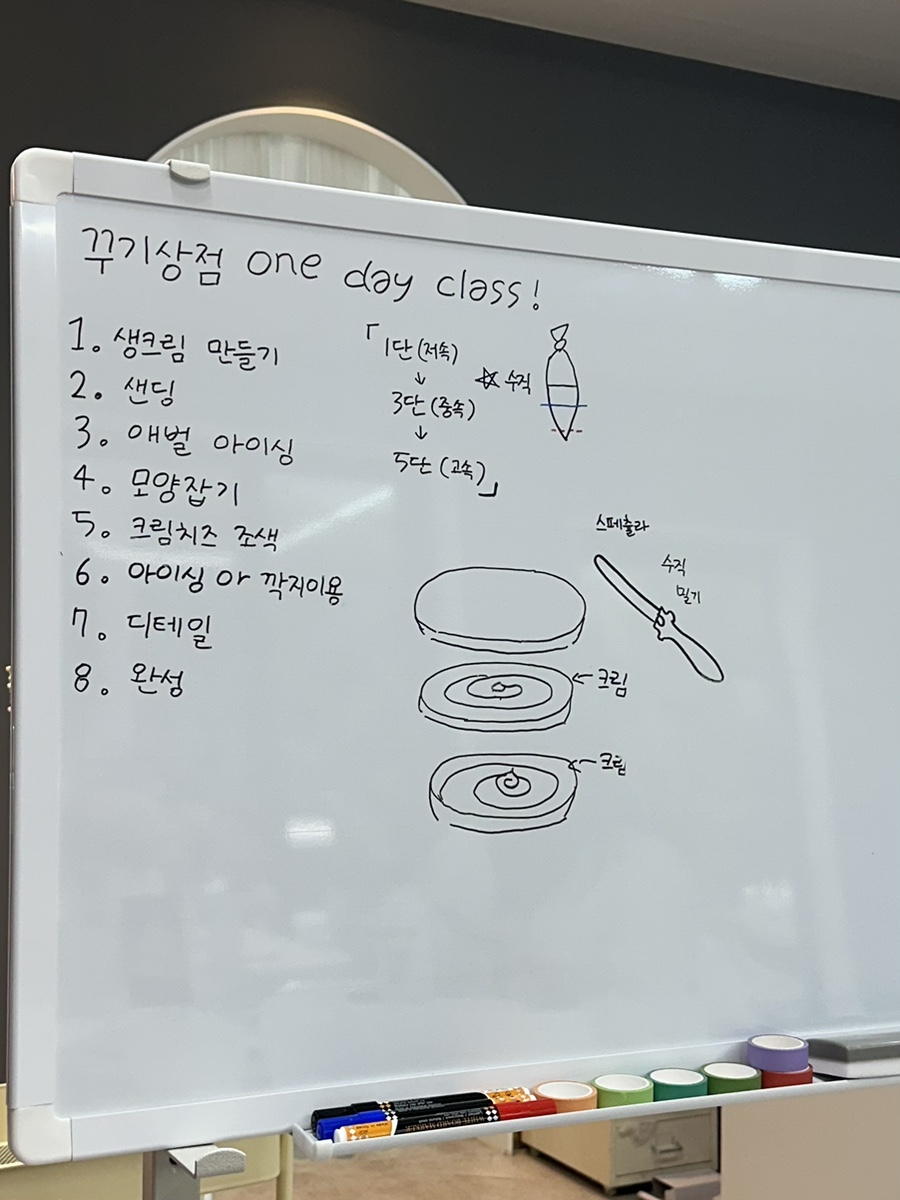 꾸기상점 one day class!
1. 생크림 만들기
2. 샌딩
3. 애벌 아이싱
4. 모양잡기
5. 크림치즈 조색
6. 아이싱 or 깍지이용
7. 디테일
8. 완성
「1단(저속)
↓
3단(중속)
↓
5단(고속)」
☆ 수직
스페츌라
수직
밀기
←크림
←크림